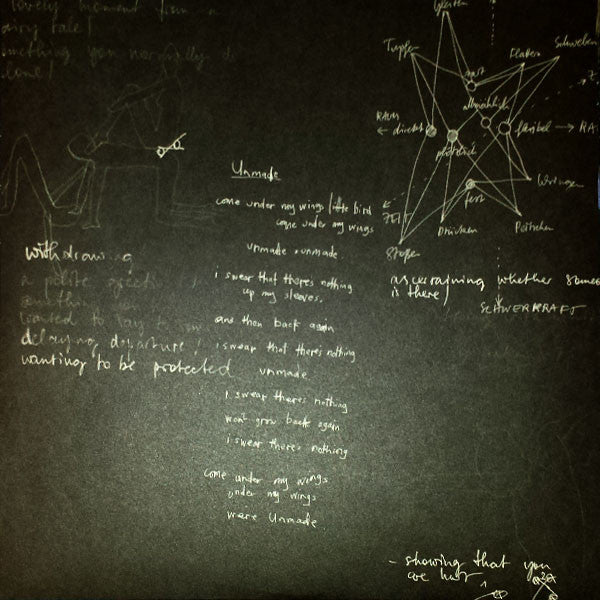 lovely moment from a
fairy tale!
something you normally do
alone!
Gleiten
Tupfen
Flattern
Schweben
zart
allmählich
RAUM
direkt
flexibel
RA
plötzlich
fest
Wringen
ZEIT
Drücken
Peitschen
Stoßen
Unmade
come under my wings little bird
come under my wings
unmade unmade
i swear that theres nothing
up my sleeves.
and then back again
i swear that there's nothing
unmade
i swear theres nothing
won't grow back again
i swear there's nothing
come under my wings
under my wings
were Unmade
withdrawing
a polite
wanted to
delaying departure
wanting to be protected
ascertaining whether someo
is there
SCHWERKRAFT
- showing that you
are hurt